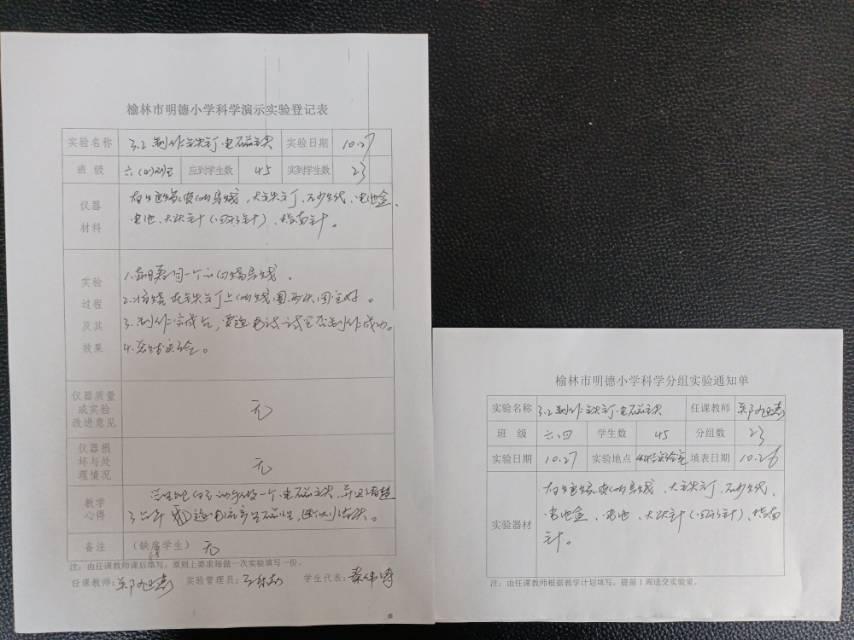 榆林市明德小学科学演示实验登记表
实验名称 3.2制作铁钉电磁铁 实验日期 10.27
班 级 六(四)班 应到学生数 45 实到学生数 23
仪器材料 有绝缘皮的导线、大铁钉、砂纸、电池盒、
电池、大头针(回形针)、指南针。
实验过程及其效果
1.
2. 在铁钉上的线圈两头固定好。
3.制作完成后,通电试一试是否制作成功。
4.总结实验。
仪器质量或实验改进意见 无
仪器损坏与处理情况 无
教学心得 学生 动手做一个电磁铁,并且清楚
通电产生磁性,断电 消失。
备注 (缺席学生) 无
注:由任课教师课后填写,原则上要求每做一次实验填写一份。
任课教师: 实验管理员: 学生代表:
榆林市明德小学科学分组实验通知单
实验名称 3.2制作铁钉电磁铁 任课教师
班 级 六.四 学生数 45 分组数 23
实验日期 10.27 实验地点 科学实验室 填表日期 10.26
实验器材 有绝缘皮的导线、大铁钉、砂纸、
电池盒、电池、大头针(回形针)、指南
针。
注:由任课教师根据教学计划填写,提前1周送交实验室。